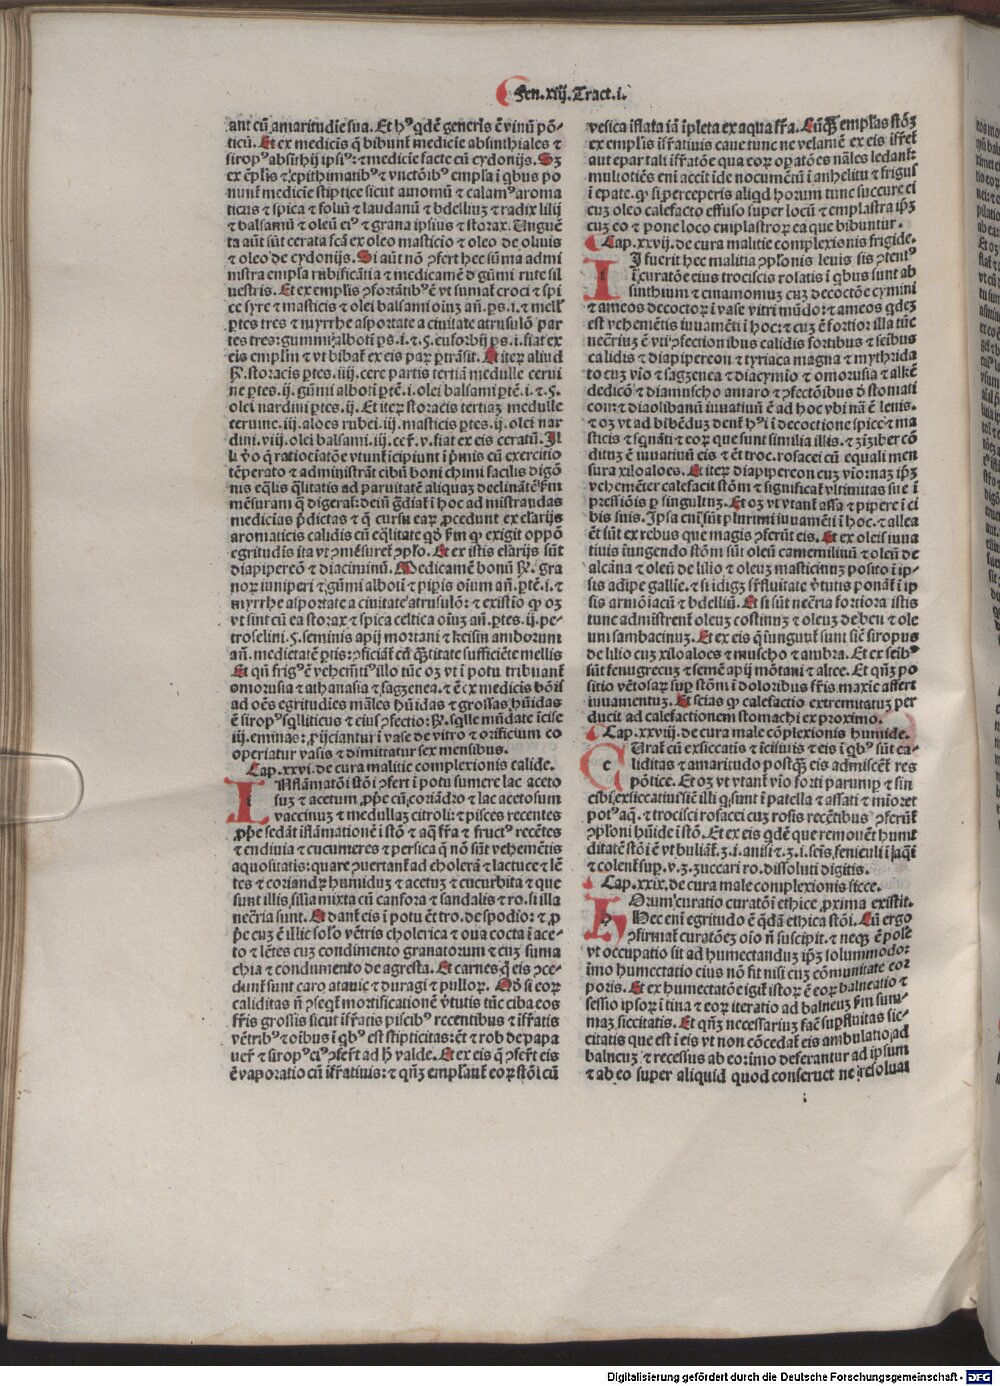 Fen.xiij.Tract.i.
ant cū amaritudie sua. Et hꝰ qdē generis ē vinū pō-
ticū. Et ex medicis q̄ bibunt medicie absinthiales ⁊
siropꝰ absithij ipsiꝰ: ⁊ medicie facte cū cydonijs. Sꝫ
ex ēplis ⁊ epithimatibꝰ ⁊ vnctōibꝰ empla i qbus po
nunt medicie stiptice sicut amomū ⁊ calamꝰ aroma
ticus ⁊ spica ⁊ foliū ⁊ laudanū ⁊ bdelliuꝫ ⁊ radix lilij
⁊ balsamū ⁊ oleū eiꝰ ⁊ grana ipsius ⁊ storax. Unguē
ta aūt sūt cerata fcā ex oleo masticio ⁊ oleo de oliuis
⁊ oleo de cydonijs. Si aūt nō ꝯfert hec sūma admi
nistra empla rubificātia ⁊ medicamē d gūmi rute sil
uestris. Et ex emplis ꝯfortātibꝰ ē vt sumat croci ⁊ spi
ce syre ⁊ masticis ⁊ olei balsami oīuꝫ an̄. ps. i. ⁊ mell
ptes tres ⁊ myrrhe asportate a ciuitate atrusulō par
tes tres: gummi alboti ps. i. ⁊ ꝭ. euforbij ps. i. fiat ex
eis emplm ⁊ vt bibat ex eis par ptrāsit. Et iteꝝ aliud
℞. storacis ptes. iiij. cere partis tertiā medulle cerui
ne ptes. ij. gūmi alboti ptē. i. olei balsami ptē. i. ⁊ ꝭ.
olei nardini ptes. ij. Et iteꝝ storacis tertiaꝫ medulle
ceruine. iij. aloes rubei. iij. masticis ptes. ij. olei nar
dini. viij. olei balsami. iij. cer̄. v. fiat ex eis ceratū. Il
li v̓o q̄ ratiociatōe vtunt īcipiunt ī p̄mis cū exercitio
tēperato ⁊ administrāt cibū boni chimi facilis digō
nis eq̄lis q̄litatis ad paruitatē aliquaꝫ declinātē fm
mēsuram q̄ digerat: deīn̄ ḡdiat i hoc ad mistrandas
medicias p̄dictas ⁊ q̄ cursu eaꝝ ꝓcedunt ex elarijs
aromaticis calidis cū eq̄litate qd̓ fm ꝙ exigit oppō
egritudis ita vt ꝯmēsuret ꝯplo. Et ex istis elarijs sūt
diapipereō ⁊ diaciminū. Medicamē bonū ℞. gra
noꝝ iuniperi ⁊ gūmi alboti ⁊ pipis oīum an̄. ptē. i. ⁊
myrrhe asportate a ciuitate atrusulō: ⁊ existīo ꝙ oꝫ
vt sint cū ea storax ⁊ spica celtica oīuꝫ an̄. ptes. ij. pe-
troselini. ꝭ. seminis apij mortani ⁊ keisin amborum
an̄. medietatē ptis: ꝯficiāt cū q̄titate sufficiēte mellis
Et qn̄ frigꝰ ē vehem̄tiꝰ illo tūc oꝫ vt i potu tribuant
omorusia ⁊ athanasia ⁊ sagꝫenea. ⁊ ē ex medicis bōis
ad oēs egritudies māles hūidas ⁊ grossas hūidas
ē siropꝰ sq̄lliticus ⁊ eius ꝯfectio: ℞. sq̄lle mūdate īcise
iij. eminas: ꝓijciantur i vase de vitro ⁊ orificium co
operiatur vasis ⁊ dimittatur sex mensibus.
Cap. xxvi. de cura malitie complexionis calide.
INflāmatōi stōi ꝯfert i potu sumere lac aceto
suꝫ ⁊ acetum ꝓpe cū coriādro ⁊ lac acetosum
vaccinuꝫ ⁊ medullaꝫ citroli: ⁊ pisces recentes
ꝓpe sedāt īflamationē i stō ⁊ aq̄ fr̄a ⁊ fructꝰ recētes
⁊ endiuia ⁊ cucumeres ⁊ persica q̄ nō sūt vehemētis
aquositatis: quare ꝯuertank ad cholerā ⁊ lactuce ⁊ lē
tes ⁊ coriandꝝ humiduꝫ ⁊ acetuꝫ ⁊ cucurbita ⁊ que
sunt illis silīa mixta cū canfora ⁊ sandalis ⁊ ro. si illa
neccīa sunt. Et dant eis i potu ēt tro. de spodio: ⁊ ꝓ
pe cuꝫ ē illic solō vētris cholerica ⁊ oua cocta i ace-
to ⁊ lētes cuꝫ condimento granatorum ⁊ cuꝫ suma
chia ⁊ condimento de agresta. Et carnes q̄ eis ꝯce-
dunt sunt caro atauic ⁊ duragi ⁊ pulloꝝ. Qd̓ si eoꝝ
caliditas n̄ ꝯseqt mortificationē v̓tutis tūc ciba eos
fr̄is grossis sicut īfr̄atis piscibꝰ recentibus ⁊ īfr̄atis
vētribꝰ ⁊ oībus i qbꝰ est stipticitas: ēt ⁊ rob de papa
uer̄ ⁊ siropꝰ eiꝰ ꝯfert ad h̓ valde. Et ex eis q̄ ꝯfert eis
ē vaporatio cū īfr̄atiuis: ⁊ qn̄ꝫ emplant eoꝝ stōi cū
vesica īflata iā īpleta ex aqua fr̄a. Cūqꝫ emplas stōꝫ
ex emplis īfr̄atiuis caue tunc ne velamē ex eis īfret
aut epar tali īfr̄atōe qua eoꝝ opatōes nāles ledant:
multotiēs eni accit ide nocumētū i anhelitu ⁊ frigus
i epate. ꝙ si perceperis aliqd horum tunc succure ei
cuꝫ oleo calefacto effuso super locū ⁊ emplastra ipꝫ
cuꝫ eo ⁊ pone loco emplastroꝝ ea que bibuntur.
Cap. xxvij. de cura malitie complexionis frigide.
SI fuerit hec malitia ꝯplonis leuis sis ꝯtentꝰ
i curatōe eius trociscis rosatis i qbus sunt ab
sinthium ⁊ cinamomuꝫ cuꝫ decoctōe cymini
⁊ ameos decoctoꝝ i vase vitri mūdo: ⁊ ameos qdeꝫ
est vehemētis iuuamēti i hoc: ⁊ cuꝫ ē fortioꝛ illa tūc
neccīus ē vti ꝯfectionibus calidis fortibus ⁊ seibus
calidis ⁊ diapipereon ⁊ tyriaca magna ⁊ mythrida
to cuꝫ vio ⁊ sagꝫenea ⁊ diacymio ⁊ omorusia ⁊ alkē
dedicō ⁊ diamuscho amaro ⁊ ꝯfectōibus d̓ stomati
con: ⁊ diaolibanū iuuatiuū ē ad hoc vbi nā ē leuis.
⁊ oꝫ vt ad bibēduꝫ dent hꝰ i decoctione spice ⁊ ma
sticis ⁊ sq̄nāti ⁊ eoꝝ que sunt similia illis. ⁊ zīziber cō
dituꝫ ē iuuatiuū eis ⁊ ēt troc. rosacei cū equali men
sura xiloaloes. Et iteꝝ diapipereon cuꝫ vio: naꝫ ipꝫ
vehemēter calefacit stōm ⁊ significat vltimitas sue i
pressiōis p singultuꝫ. Et oꝫ vt vtant assa ⁊ pipere i ci
bis suis. Ipsa eni sūt plurimi iuuamēti i hoc. ⁊ allea
ēt sūt ex rebus que magis ꝯferūt eis. Et ex oleis iuua
tiuis iungendo stōm sūt oleū camemilinū ⁊ oleū de
alcāna ⁊ oleū de lilio ⁊ oleuꝫ masticinuꝫ posito i ip-
sis adipe galline. ⁊ si idigꝫ sr̄fluitate v̓tutis ponāt i ip
sis armōiacū ⁊ bdelliū. Et si sūt neccīa fortiora istis
tunc admistrent oleuꝫ costinuꝫ ⁊ oleuꝫ de beu ⁊ ole
um sambacinuꝫ. Et ex eis q̄ īungunt sunt sic siropus
de lilio cuꝫ xiloaloes ⁊ muscho ⁊ ambra. Et ex seibꝰ
sūt fenugrecuꝫ ⁊ semē apij mōtani ⁊ altee. Et qn̄ꝫ po
sitio vētosaꝝ sup stōm i doloribus fr̄is maxīe affert
iuuamentuꝫ. Et scias ꝙ calefactio extremitatuꝫ per
ducit ad calefactionem stomachi ex proximo.
Cap. xxviij. de cura male cōplexionis humide.
CUrat cū exsiccatis ⁊ īcisiuis ⁊ eis i qbꝰ sūt ca-
liditas ⁊ amaritudo postq̄ꝫ eis admiscent res
pōtice. Et oꝫ vt vtant vio forti parumꝑ ⁊ sin
cibi exsiccatiui sic illi q̄ sunt i patella ⁊ assati ⁊ mioret
potꝰ aq̄. ⁊ trocisci rosacei cuꝫ rosis recētibus ꝯferūt
ꝯploni hūide i stō. Et ex eis qdē que remouēt humi
ditatē stōi ē vt buliāt. ʒ. i. anisi ⁊. ʒ. i. seīs. feniculi i aq̄i
⁊ colent sup. v. ʒ. zuccari ro. dissoluti digitis.
Cap. xxix. de cura male complexionis sicce.
HOrum curatio curatōi ethice ꝓxima existit.
Hec eni egritudo ē qdā ethica stōi. Cū ergo
ꝯfirmat curatōeꝫ oīo n̄ suscipit. ⁊ neqꝫ ē posē
vt occupatio sit ad humectanduꝫ ipꝫ solummodo:
īmo humectatio eius nō fit nisi cuꝫ cōmunitate eoꝝ
poris. Et ex humectatōe igit istoꝝ ē eoꝝ balneatio ⁊
sessio ipsoꝝ i tina ⁊ eoꝝ iteratio ad balneuꝫ fm sum-
maꝫ siccitatis. Et qn̄ꝫ necessariuꝫ facē supfluitas sic-
citatis que est i eis vt non cōcedat eis ambulatio ad
balneuꝫ ⁊ recessus ab eo: imo deferantur ad ipsum
⁊ ab eo super aliquid quod conseruct ne resoluat
Digitalisierung gefördert durch die Deutsche Forschungsgemeinschaft - DFG